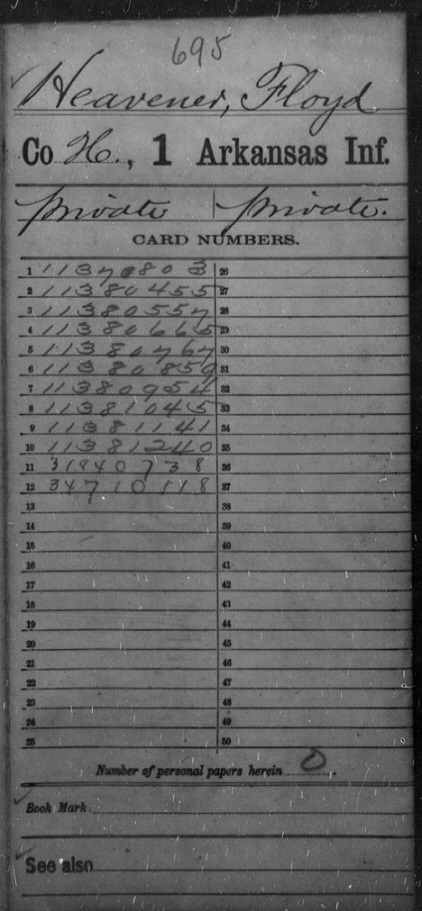 695
Heavener, Floyd
Co H., 1 Arkansas Inf.
private | private.
CARD NUMBERS.
1 26
2 11380455 27
3 11380557 28
4 11380665 29
5 11380767 30
6 11380859 31
7 11380954 32
8 11381045 33
9 11381141 34
10 11381240 35
11 31940738 36
12 34710118 37
13 38
14 39
15 40
16 41
17 42
18 43
19 44
20 45
21 46
22 47
23 48
24 49
25 50
Number of personal papers herein 0.
Book Mark:
See also